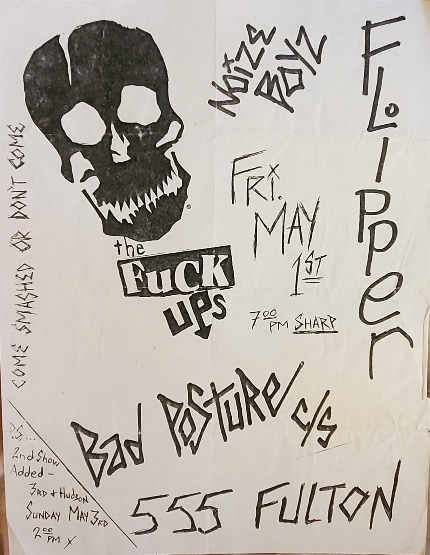 NOiZE
BOYZ
FLipper
COME SMASHED OR DON'T COME
FRi.
MAY
1ST
7:00 PM SHARP
the
FuCK
uPs
Bad POSTURE c/s
P.S...
2nd Show
Added -
3RD & Hudson
SUNDAY MAY 3RD
2:00 PM X
555 FULTON